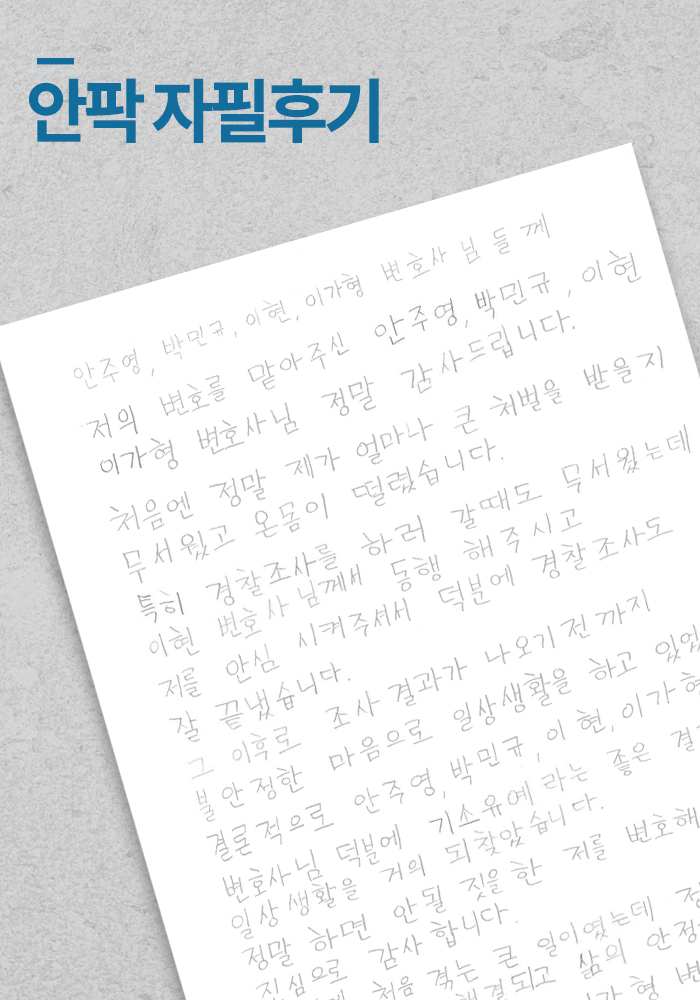 안팍 자필후기
안주영, 박민규, 이현, 이가형 변호사 님 들 께
저의 변호를 맡아주신 안주영, 박민규, 이현
이가형 변호사님 정말 감사드립니다.
처음엔 정말 제가 얼마나 큰 처벌을 받을지
무서웠고 온몸이 떨렸습니다.
특히 경찰조사를 하러 갈때도 무서웠는데
이현 변호사님께서 동행 해주시고
저를 안심 시켜주셔서 덕분에 경찰조사도
잘 끝냈습니다.
그 이후로 조사 결과가 나오기전까지
불안정한 마음으로 일상생활을 하고
결론적으로 안주영, 박민규, 이현, 이가
변호사님 덕분에 기소유예 라는 좋은
일상생활을 거의 되찾았습니다.
정말 하면 안될 짓을 한 저를 변호해
진심으로 감사 합니다.
처음 겪는 큰 일이였는데
해결되고 삶의